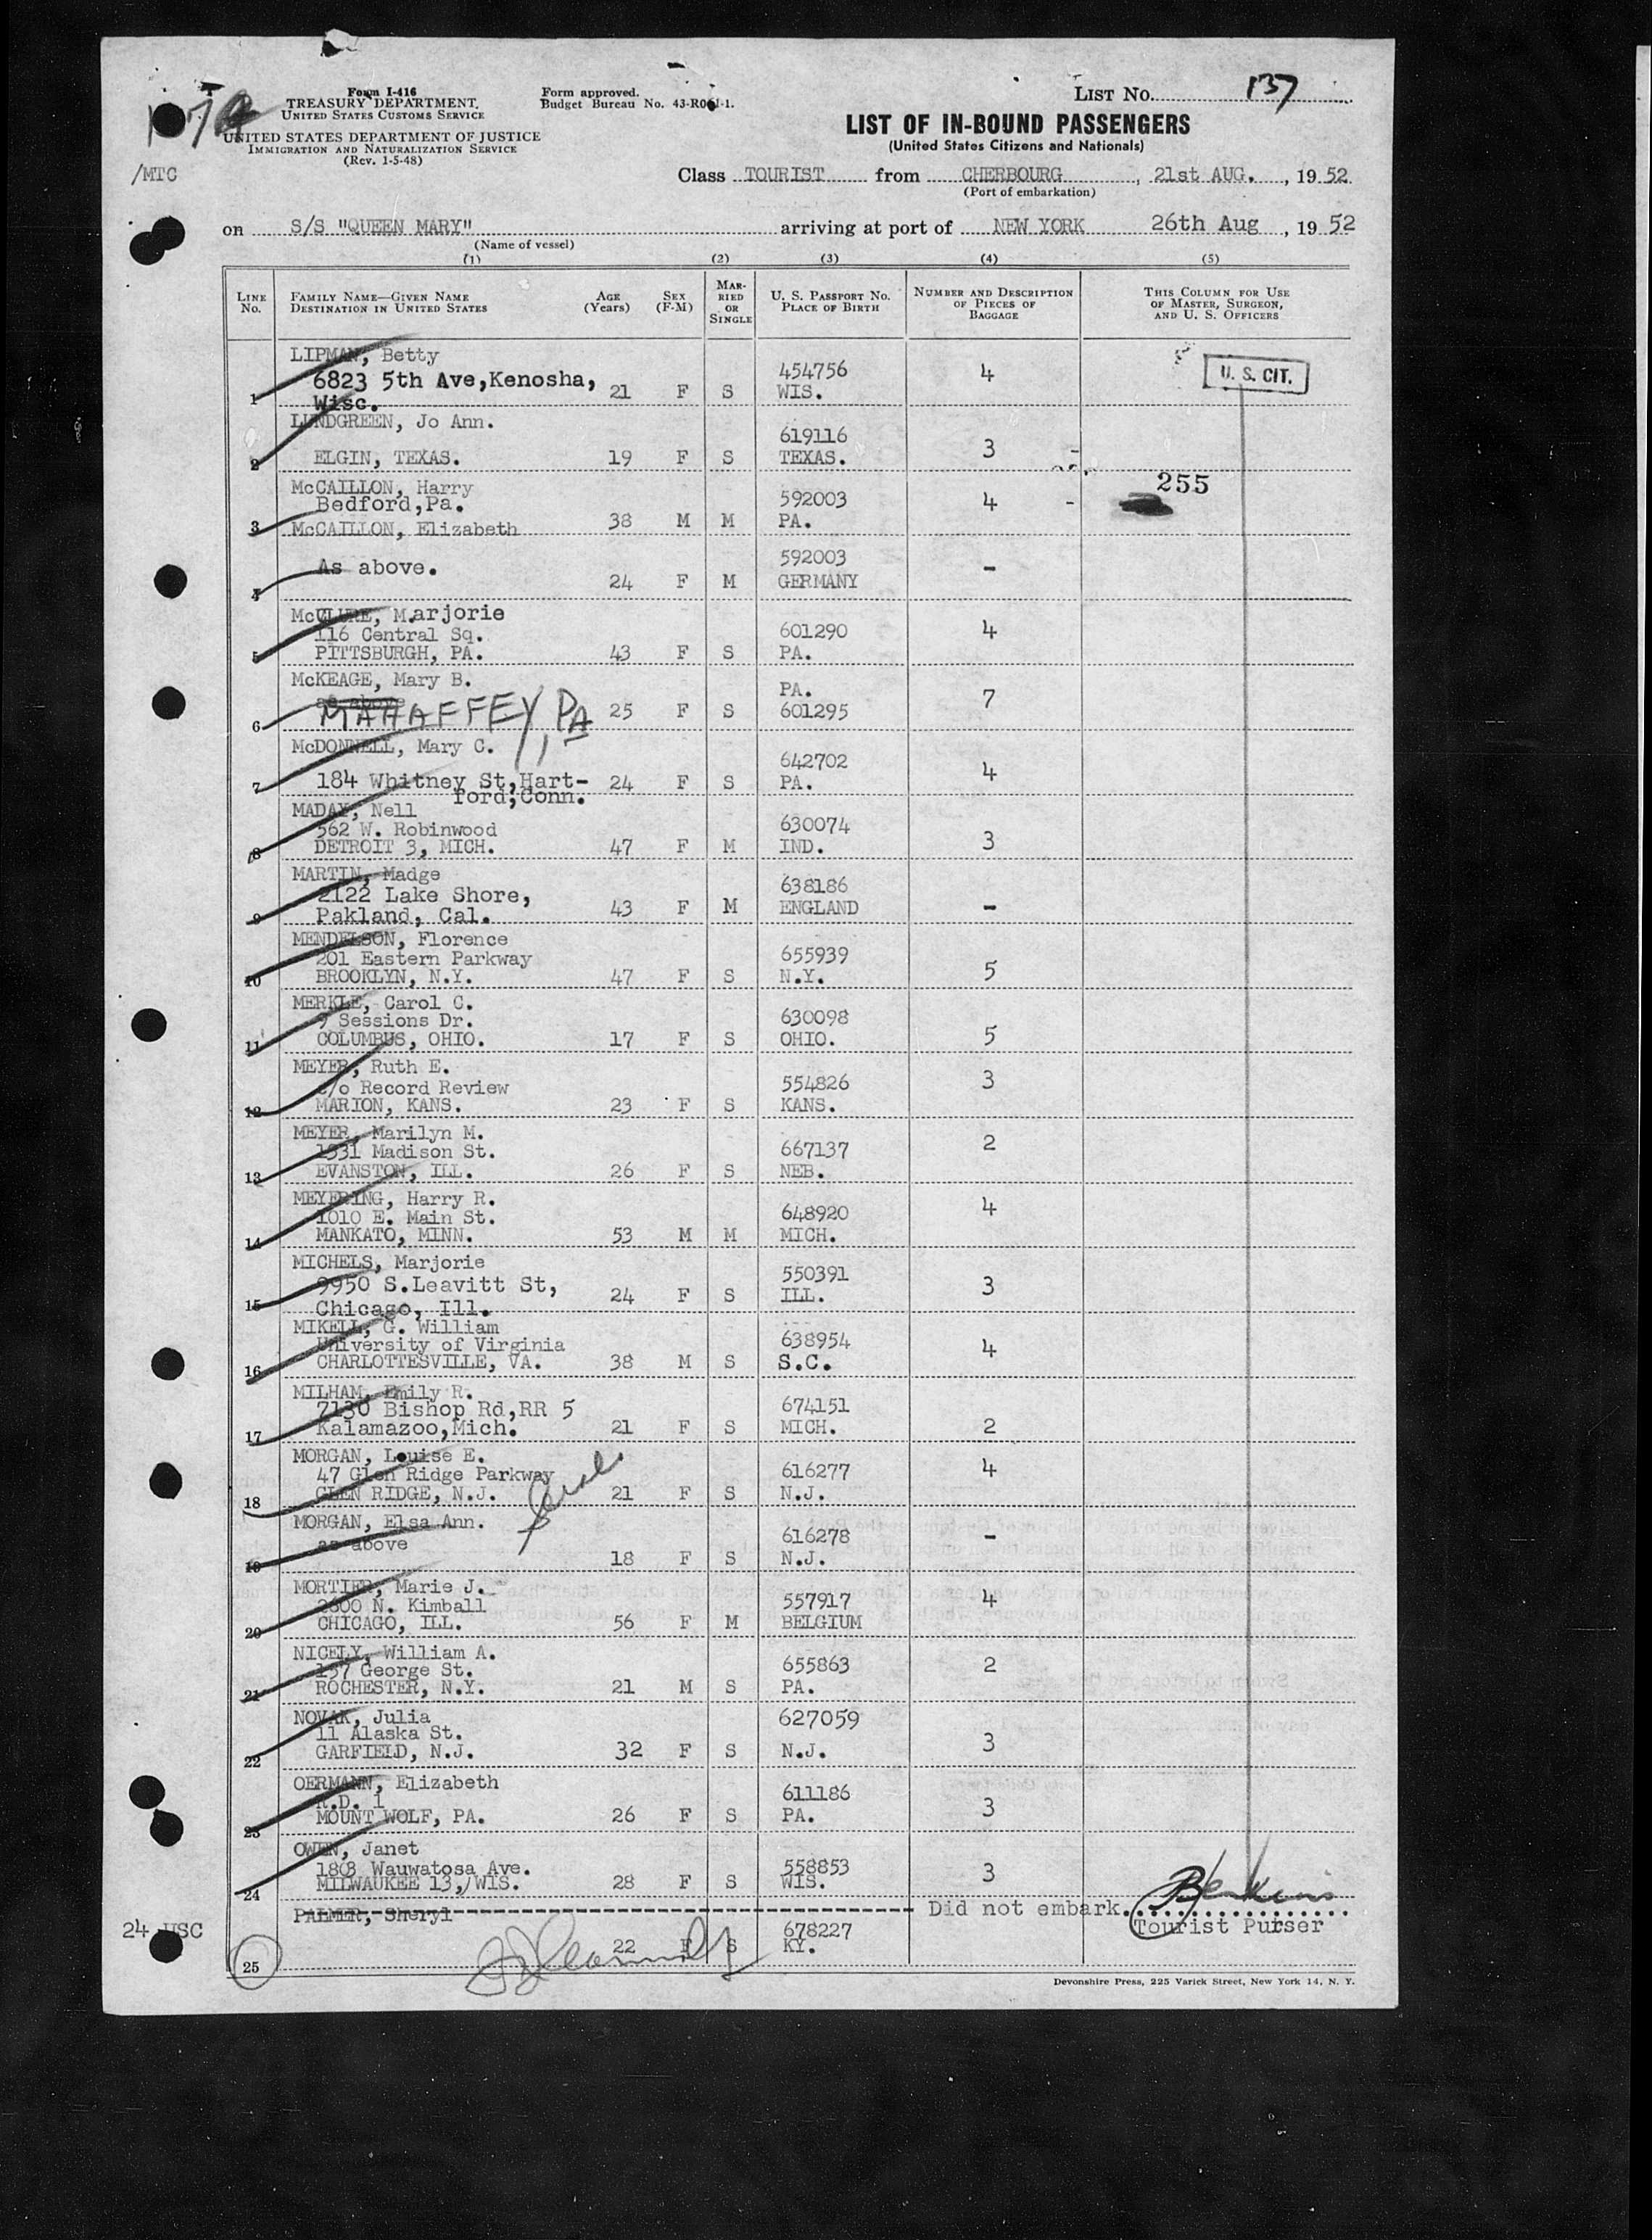 Form I-416
TREASURY DEPARTMENT
UNITED STATES CUSTOMS SERVICE
UNITED STATES DEPARTMENT OF JUSTICE
IMMIGRATION AND NATURALIZATION SERVICE
(Rev. 1-5-48)
Form approved.
Budget Bureau No. 43-R061-1.
LIST NO. 137
LIST OF IN-BOUND PASSENGERS
(United States Citizens and Nationals)
/MTC
Class TOURIST from CHERBOURG, 21st AUG., 1952
(Port of embarkation)
on S/S "QUEEN MARY" arriving at port of NEW YORK 26th Aug, 1952
(Name of vessel)
(1) (2) (3) (4) (5)
LINE NO. FAMILY NAME—GIVEN NAME DESTINATION IN UNITED STATES AGE (Years) SEX (F-M) MARRIED OR SINGLE U. S. PASSPORT NO. PLACE OF BIRTH NUMBER AND DESCRIPTION OF PIECES OF BAGGAGE THIS COLUMN FOR USE OF MASTER, SURGEON, AND U. S. OFFICERS
LIPMAN, Betty 454756 4 U. S. CIT.
6823 5th Ave,Kenosha,
1 Wisc. 21 F S WIS.
LUNDGREEN, Jo Ann. 619116 3 -
2 ELGIN, TEXAS. 19 F S TEXAS.
255
McCAILLON, Harry 592003 4 -
Bedford,Pa.
3 38 M M PA.
McCAILLON, Elizabeth 592003 -
4 As above. 24 F M GERMANY
McCLURE, Marjorie 601290 4
116 Central Sq.
5 PITTSBURGH, PA. 43 F S PA.
McKEAGE, Mary B. PA. 7
as above
6 MAHAFFEY, PA 25 F S 601295
McDONNELL, Mary C. 642702 4
7 184 Whitney St,Hart- 24 F S PA.
ford,Conn.
MADAY, Nell 630074 3
562 W. Robinwood
8 DETROIT 3, MICH. 47 F M IND.
MARTIN, Madge 638186 -
2122 Lake Shore,
9 Pakland, Cal. 43 F M ENGLAND
MENDELSON, Florence 655939 5
201 Eastern Parkway
10 BROOKLYN, N.Y. 47 F S N.Y.
MERKLE, Carol C. 630098 5
9 Sessions Dr.
11 COLUMBUS, OHIO. 17 F S OHIO.
MEYER, Ruth E. 554826 3
c/o Record Review
12 MARION, KANS. 23 F S KANS.
MEYER, Marilyn M. 667137 2
1331 Madison St.
13 EVANSTON, ILL. 26 F S NEB.
MEYERING, Harry R. 648920 4
1010 E. Main St.
14 MANKATO, MINN. 53 M M MICH.
MICHELS, Marjorie 550391 3
9950 S.Leavitt St,
15 Chicago, Ill. 24 F S ILL.
MIKELL, G. William 638954 4
University of Virginia
16 CHARLOTTESVILLE, VA. 38 M S S.C.
MILHAM, Emily R. 674151 2
7130 Bishop Rd,RR 5
17 Kalamazoo,Mich. 21 F S MICH.
MORGAN, Louise E. 616277 4
47 Glen Ridge Parkway
18 GLEN RIDGE, N.J. 21 F S N.J.
MORGAN, Elsa Ann. 616278 -
as above
19 18 F S N.J.
MORTIER, Marie J. 557917 4
N. Kimball
20 CHICAGO, ILL. 56 F M BELGIUM
NICELY, William A. 655863 2
137 George St.
21 ROCHESTER, N.Y. 21 M S PA.
NOVAK, Julia 627059 3
11 Alaska St.
22 GARFIELD, N.J. 32 F S N.J.
OERMANN, Elizabeth 611186 3
R.D. 1
23 MOUNT WOLF, PA. 26 F S PA.
OWEN, Janet 558853 3
1808 Wauwatosa Ave.
24 MILWAUKEE 13, WIS. 28 F S WIS.
PALMER, Sheryl 678227 Did not embark.
Tourist Purser
24 USC
25 22 F S KY.
Devonshire Press, 225 Varick Street, New York 14, N. Y.